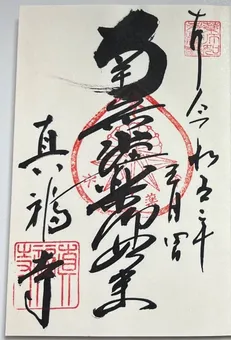 奉 令和五年
五月四日
南無薬師如来
真福寺